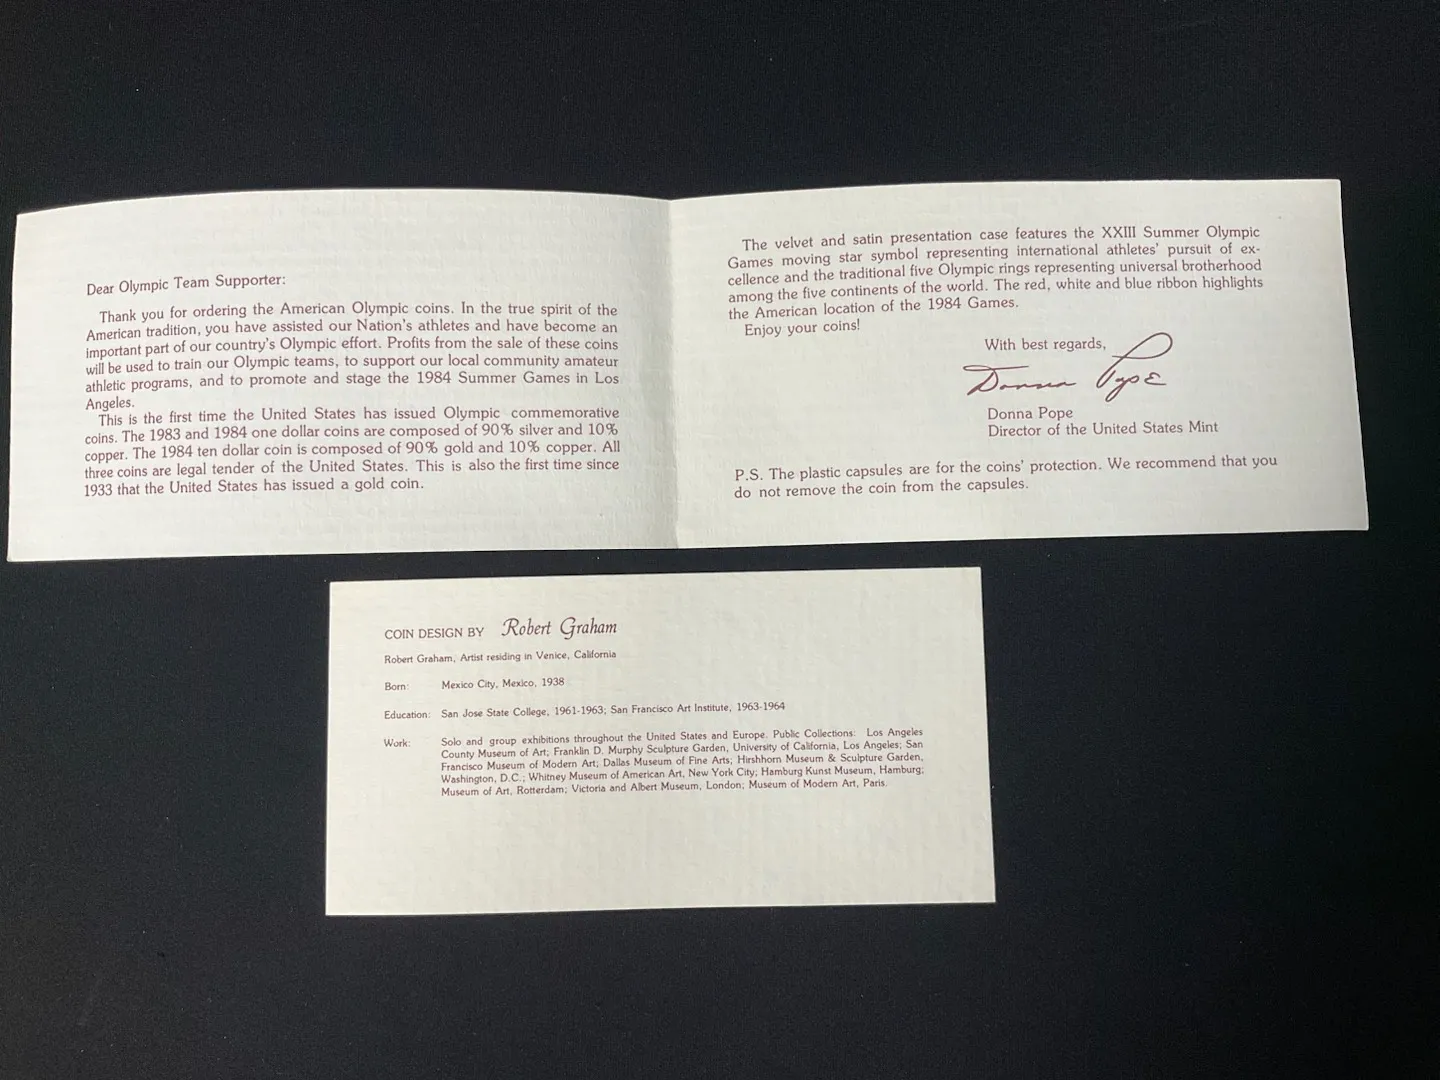 Dear Olympic Team Supporter:
Thank you for ordering the American Olympic coins. In the true spirit of the
American tradition, you have assisted our Nation's athletes and have become an
important part of our country's Olympic effort. Profits from the sale of these coins
will be used to train our Olympic teams, to support our local community amateur
athletic programs, and to promote and stage the 1984 Summer Games in Los
Angeles.
This is the first time the United States has issued Olympic commemorative
coins. The 1983 and 1984 one dollar coins are composed of 90% silver and 10%
copper. The 1984 ten dollar coin is composed of 90% gold and 10% copper. All
three coins are legal tender of the United States. This is also the first time since
1933 that the United States has issued a gold coin.
The velvet and satin presentation case features the XXIII Summer Olympic
Games moving star symbol representing international athletes' pursuit of ex-
cellence and the traditional five Olympic rings representing universal brotherhood
among the five continents of the world. The red, white and blue ribbon highlights
the American location of the 1984 Games.
Enjoy your coins!
With best regards,
Donna Pope
Donna Pope
Director of the United States Mint
P.S. The plastic capsules are for the coins' protection. We recommend that you
do not remove the coin from the capsules.
COIN DESIGN BY Robert Graham
Robert Graham, Artist residing in Venice, California
Born: Mexico City, Mexico, 1938
Education: San Jose State College, 1961-1963; San Francisco Art Institute, 1963-1964
Work: Solo and group exhibitions throughout the United States and Europe. Public Collections: Los Angeles
County Museum of Art; Franklin D. Murphy Sculpture Garden, University of California, Los Angeles; San
Francisco Museum of Modern Art; Dallas Museum of Fine Arts; Hirshhorn Museum & Sculpture Garden,
Washington, D.C.; Whitney Museum of American Art, New York City; Hamburg Kunst Museum, Hamburg;
Museum of Art, Rotterdam; Victoria and Albert Museum, London; Museum of Modern Art, Paris.